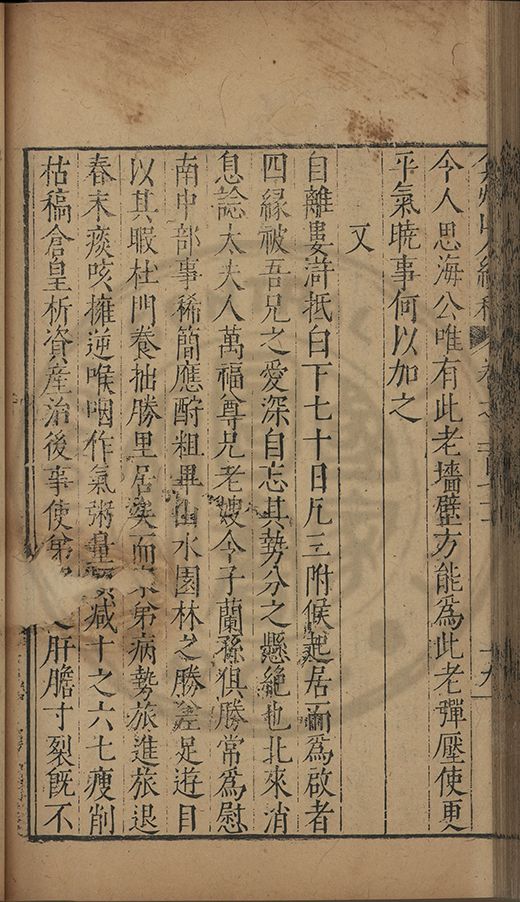 今人思海公唯有此老墻壁方能爲此老彈壓使更
平氣曉事何以加之
又
自離婁滸抵白下七十日凡三附候起居而爲啟者
四緣被吾兄之愛深自忘其勢分之懸絶也北來消
息諗太夫人萬福尊兄老嫂令子蘭孫俱勝常爲慰
南中部事稀簡應酧粗畢山水園林之勝差足遊目
以其暇杜門養拙勝里居矣而弟病勢旅進旅退
春末痰咳擁逆喉咽作氣粥量減十之六七瘦削
枯稿倉皇析資産治後事使弟肝膽寸裂旣不